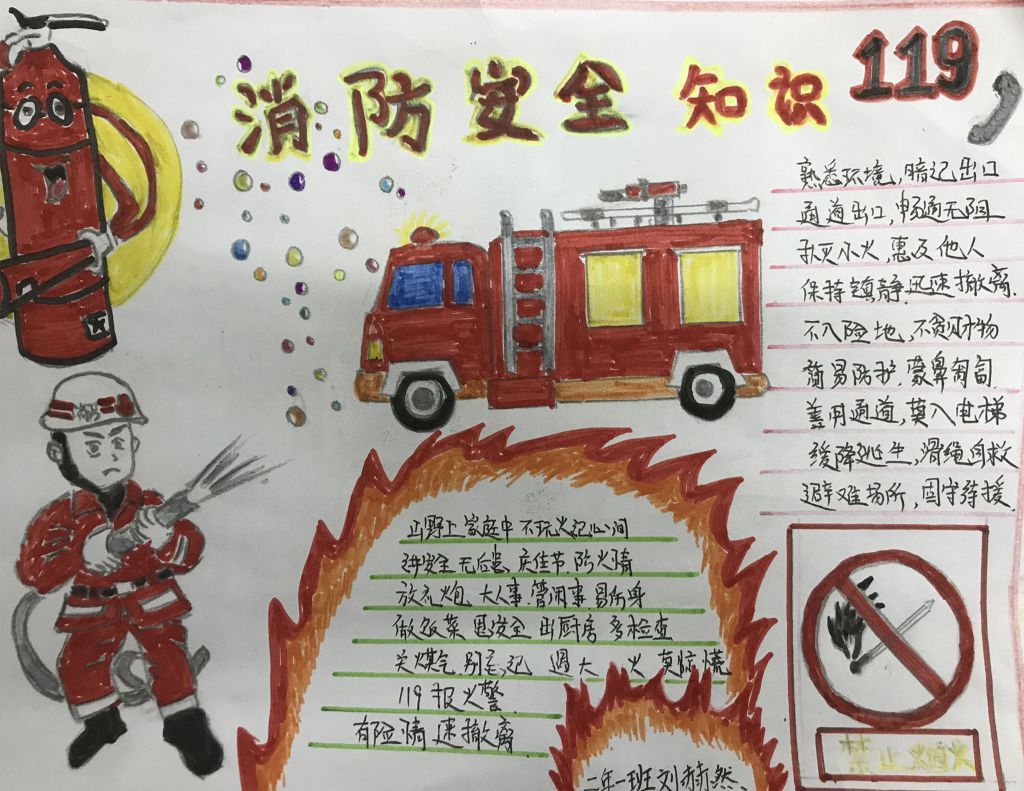 消防安全知识
119
熟悉环境,暗记出口
通道出口,畅通无阻
扑灭小火,惠及他人
保持镇静,迅速撤离.
不入险地,不贪财物
简易防护,蒙鼻匍匐
善用通道,莫入电梯
缓降逃生,滑绳自救
避难场所,固守待援
山野上 家庭中 不玩火记心间
讲安全 无后患 庆佳节 防火情
放礼炮 大人事 管闲事 易伤身
做饭菜 思安全 出厨房 多检查
关煤气 别忘记 遇大火 莫惊慌
119报火警
有险情 速撤离
二年一班刘赫然、
禁止烟火